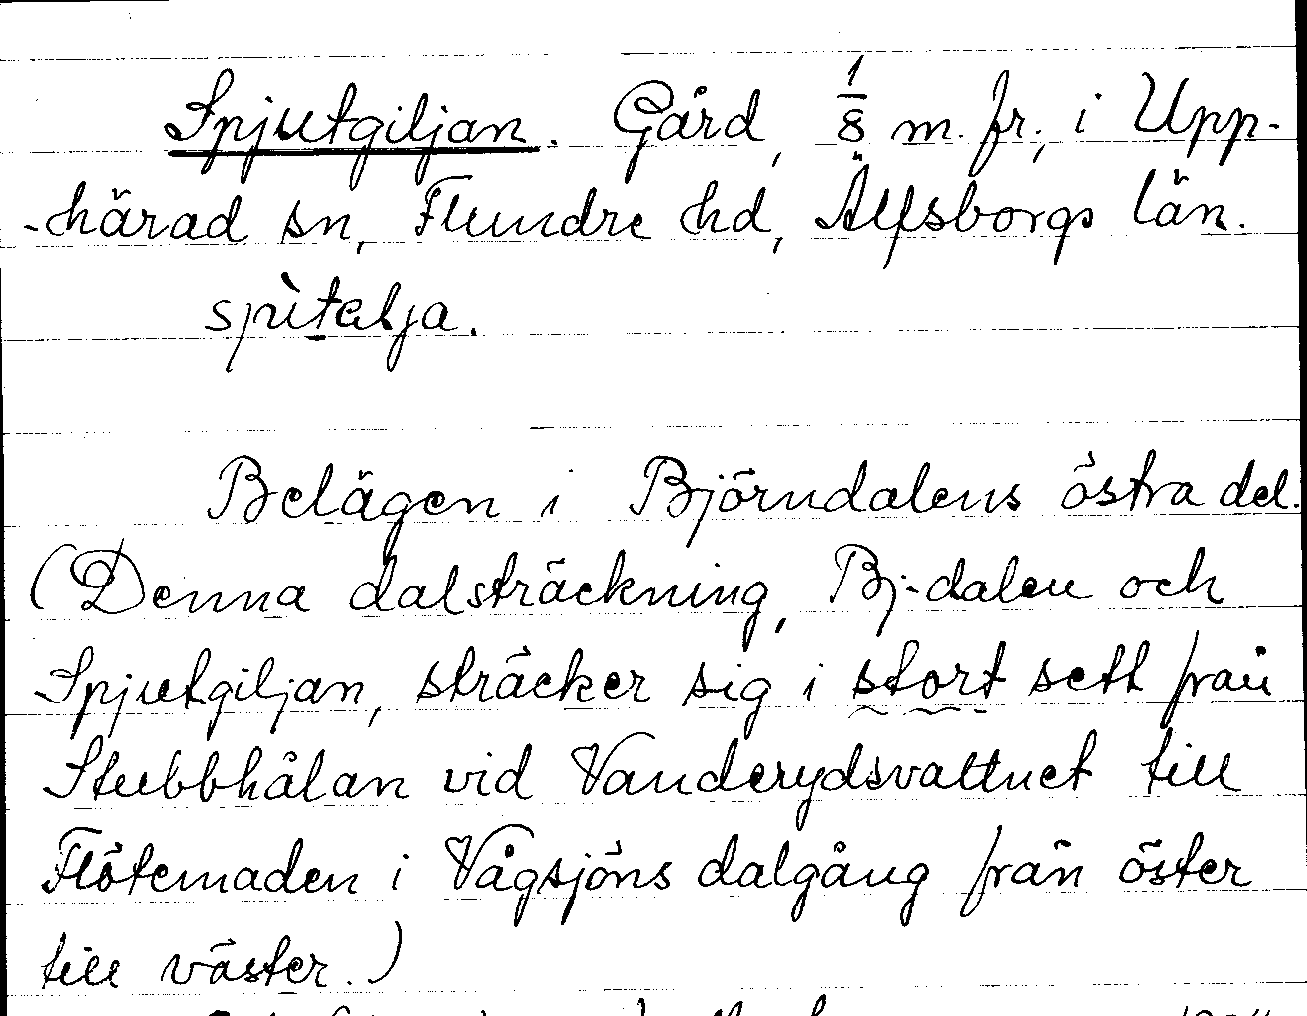 Spjutgiljan. Gård, 1/8 m. fr., i Upp-
-härad sn, Flundre hd, Älfsborgs län.
Belägen i Björndalens östra del.
(Denna dalsträckning, Bj.-dalen och
Spjutgiljan, sträcker sig i stort sett från
Stubbhålan vid Vanderydsvattnet till
Flötemaden i Vågsjöns dalgång från öster
till väster.)